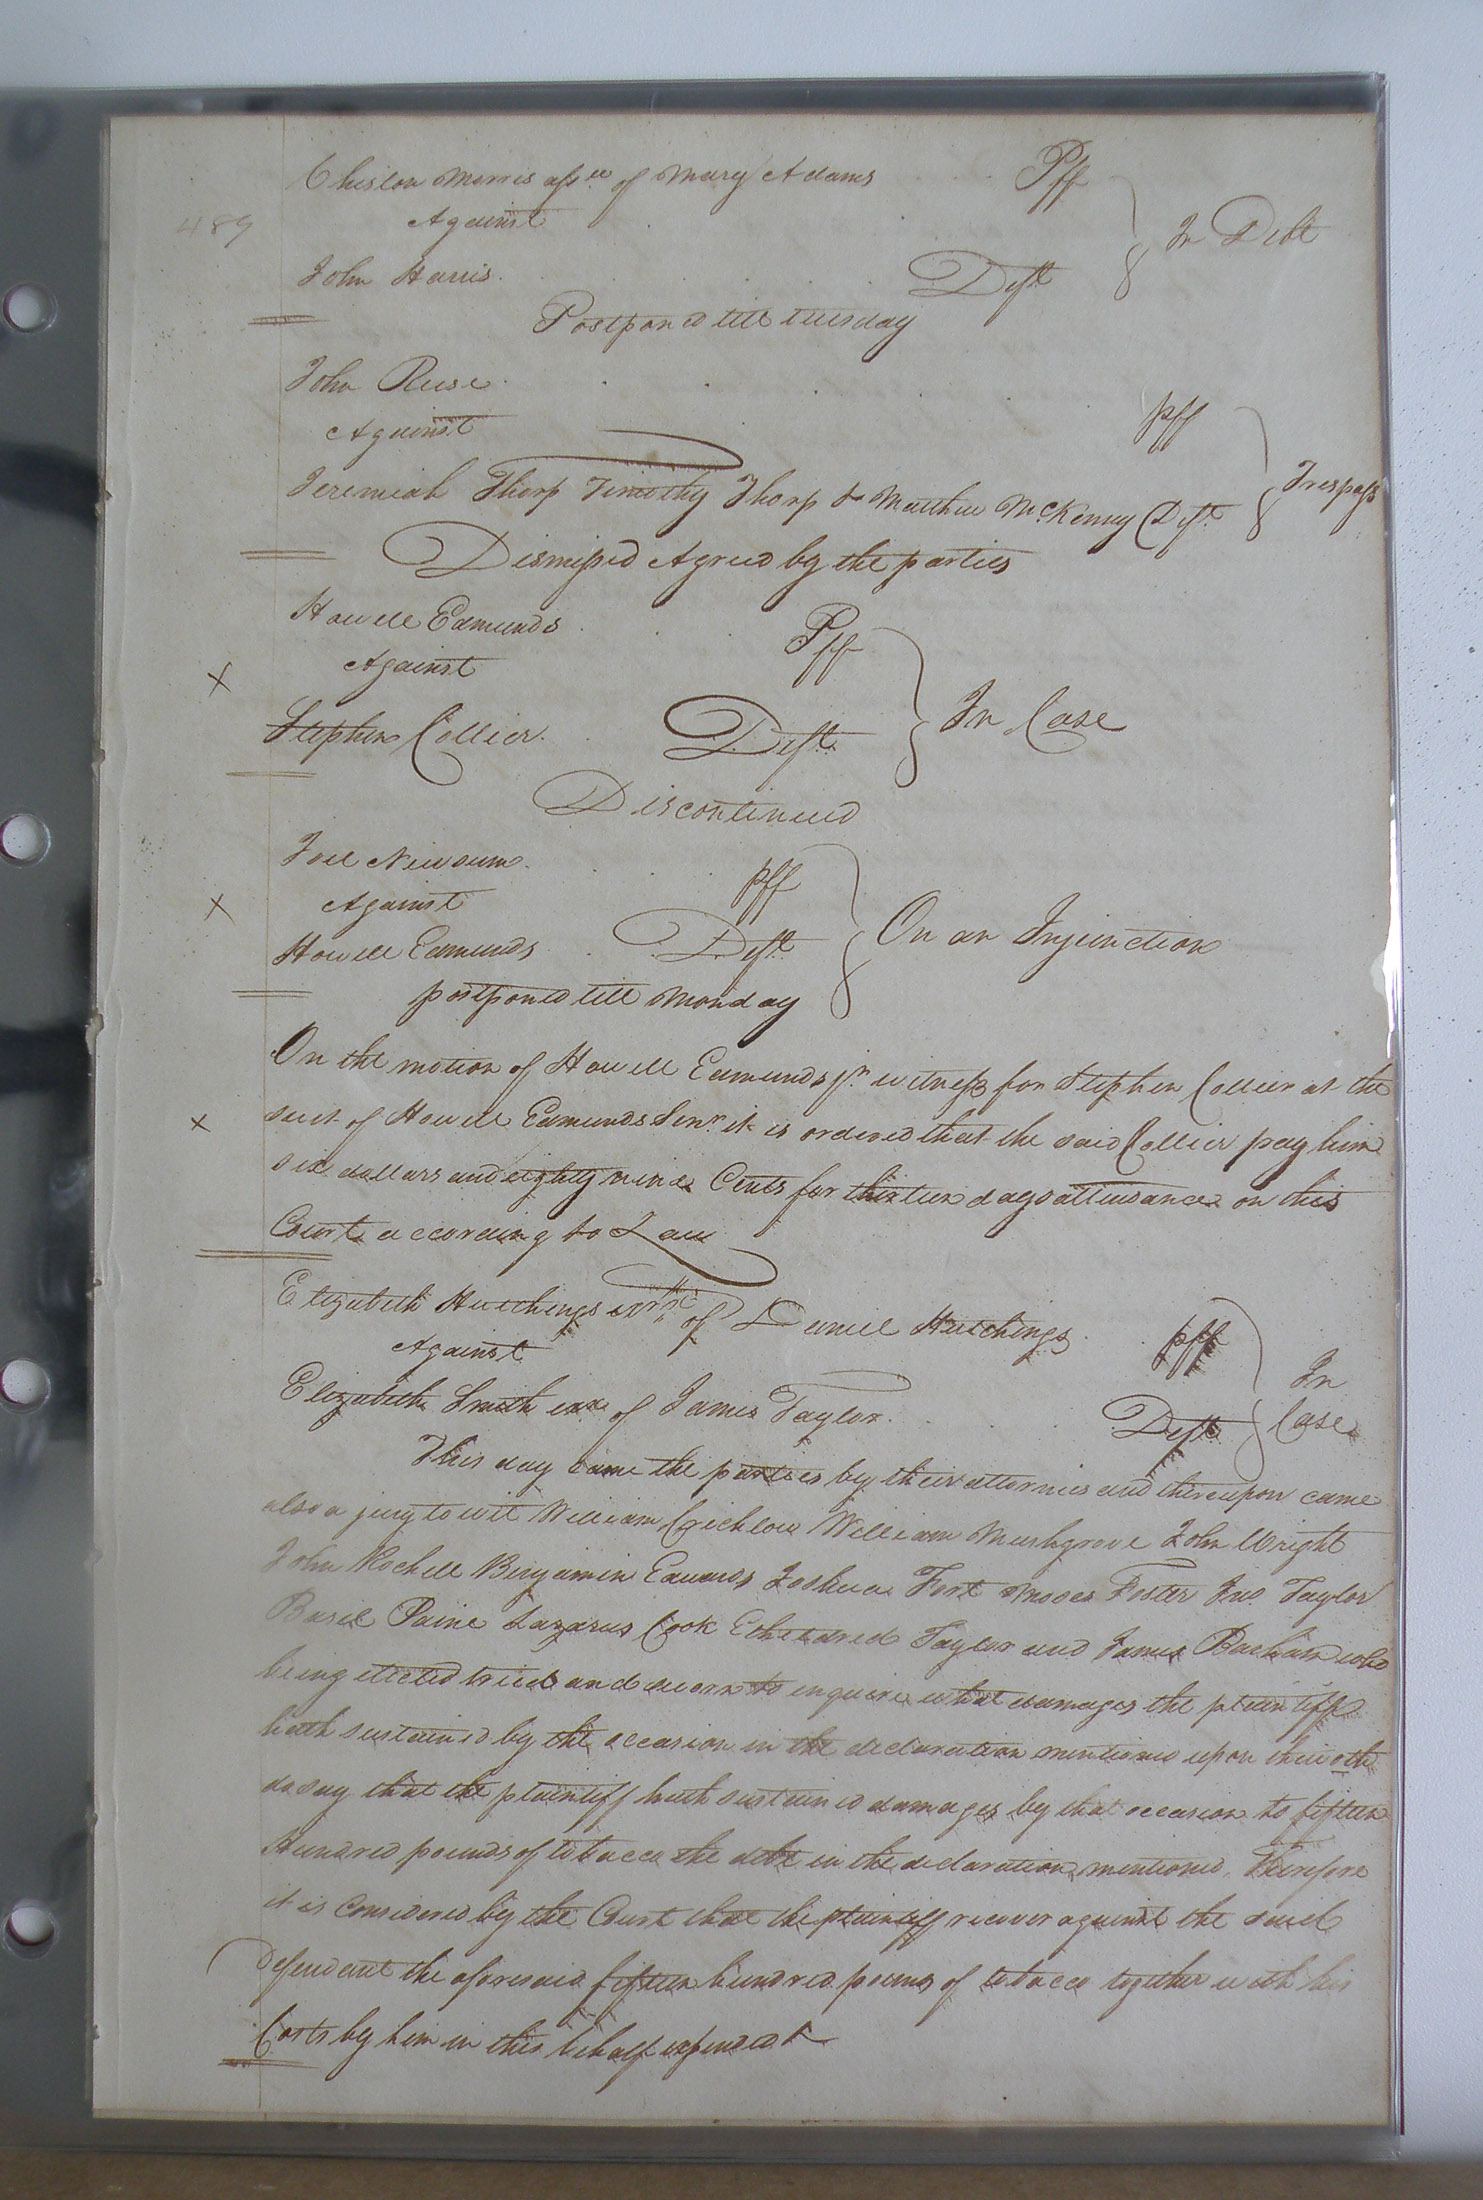 Chislon Morris assee of Mary Adams Pff
Against
489
In Debt
John Harris Deft
Postponed till tuesday
John Ruse
Against pff
Jeremiah Thorp Timothy Thorp & Matthew McKenny Deft Trespass
Dismissed Agreed by the parties
Howell Edmunds Pff
Against
X
Stephen Collier Deft In Case
Discontinued
Joel Newsum pff
Against
X
Howell Edmunds Deft On an Injunction
postponed till Monday
On the motion of Howell Edmunds jr witness for Stephen Collier at the
X suit of Howell Edmunds Senr it is ordered that the said Collier pay him
six dollars and eighty nine Cents for thirteen days attendance on this
Court according to Law
Elizabeth Hutchings of Daniel Hutchings pff
Against In
Elizabeth Smith exx of James Taylor Deft Case
This day came the parties by their attornies and thereupon came
also a jury to wit William Crichlow William Mushgrove John Wright
John Rochell Benjamin Edwards Joshua Fort Moses Foster Jno Taylor
Basil Paine Lazarus Cook Etheldred Taylor and James Barham who
being elected tried and sworn to enquire what damages the plaintiff
hath sustained by the occasion in the declaration mentioned upon their oth
do say that the plaintiff hath sustained damages by that occasion to fifteen
Hundred pounds of tobacco the debt in the declaration mentioned. Therefore
it is Considered by the Court that the plaintiff recover against the said
Defendant the aforesaid fifteen hundred pounds of tobacco together with his
Costs by him in this behalf expended